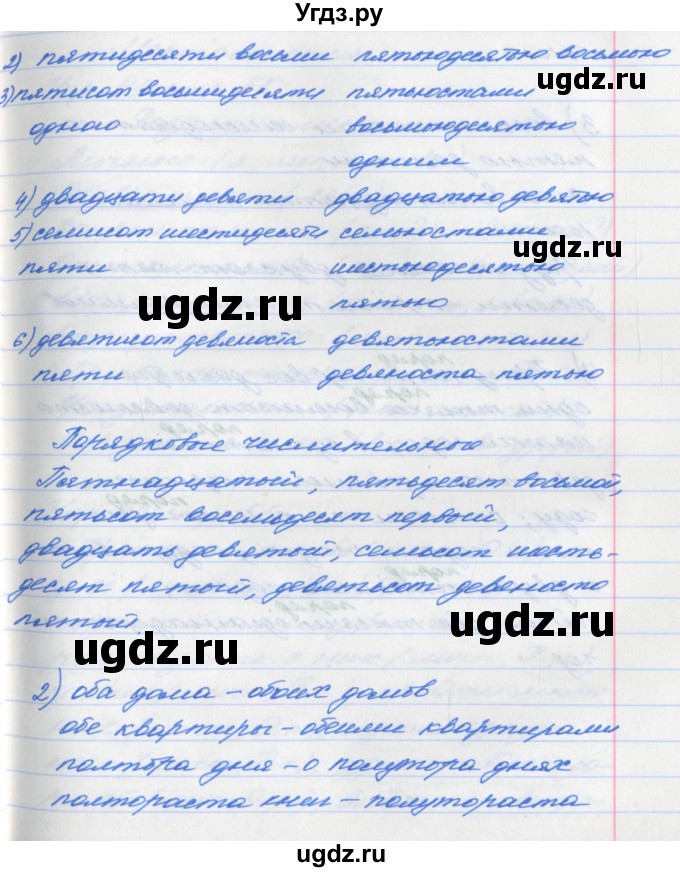 Угдз.ру
2) пятидесяти восьми пятьюдесятью восьмью
ugdz.ru
3) пятисот восьмидесяти пятьюстами
одного восьмьюдесятью
одним
4) двадцати девяти двадцатью девятью
5) семисот шестидесяти семьюстами
ugdz.ru
пяти шестьюдесятью
пятью
ugdz.ru
6) девятисот девяноста девятьюстами
пяти девяноста пятью
Порядковые числительные
Пятнадцатый, пятьдесят восьмой,
пятьсот восемьдесят первый,
двадцать девятый, семьсот шесть-
десят пятый, девятьсот девяносто
пятый
ugdz.ru
ugdz.ru
2) оба дома – обоих домов
обе квартиры – обеими квартирами
полтора дня – о полутора днях
полтораста книг – полутораста
ugdz.ru